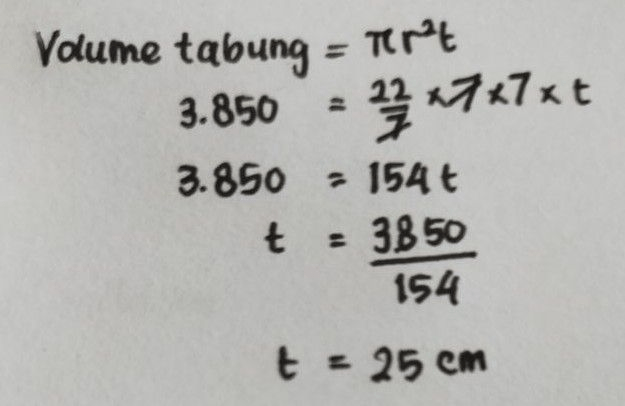 Volume tabung = πr²t
3.850 = 22/7 × 7 × 7 × t
3.850 = 154 t
t = 3850/154
t = 25 cm